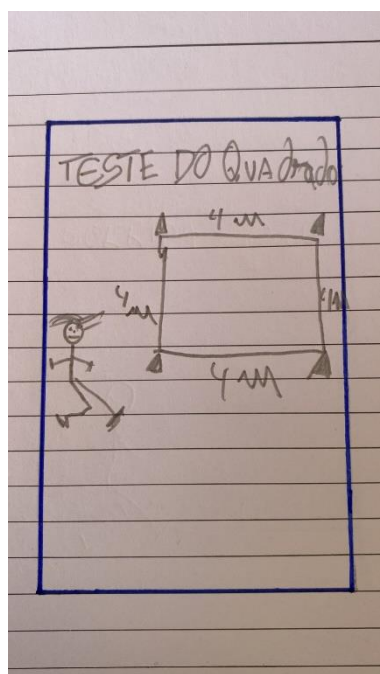 TESTE DO QUAdrado
4 m
4 m
4m
4 m